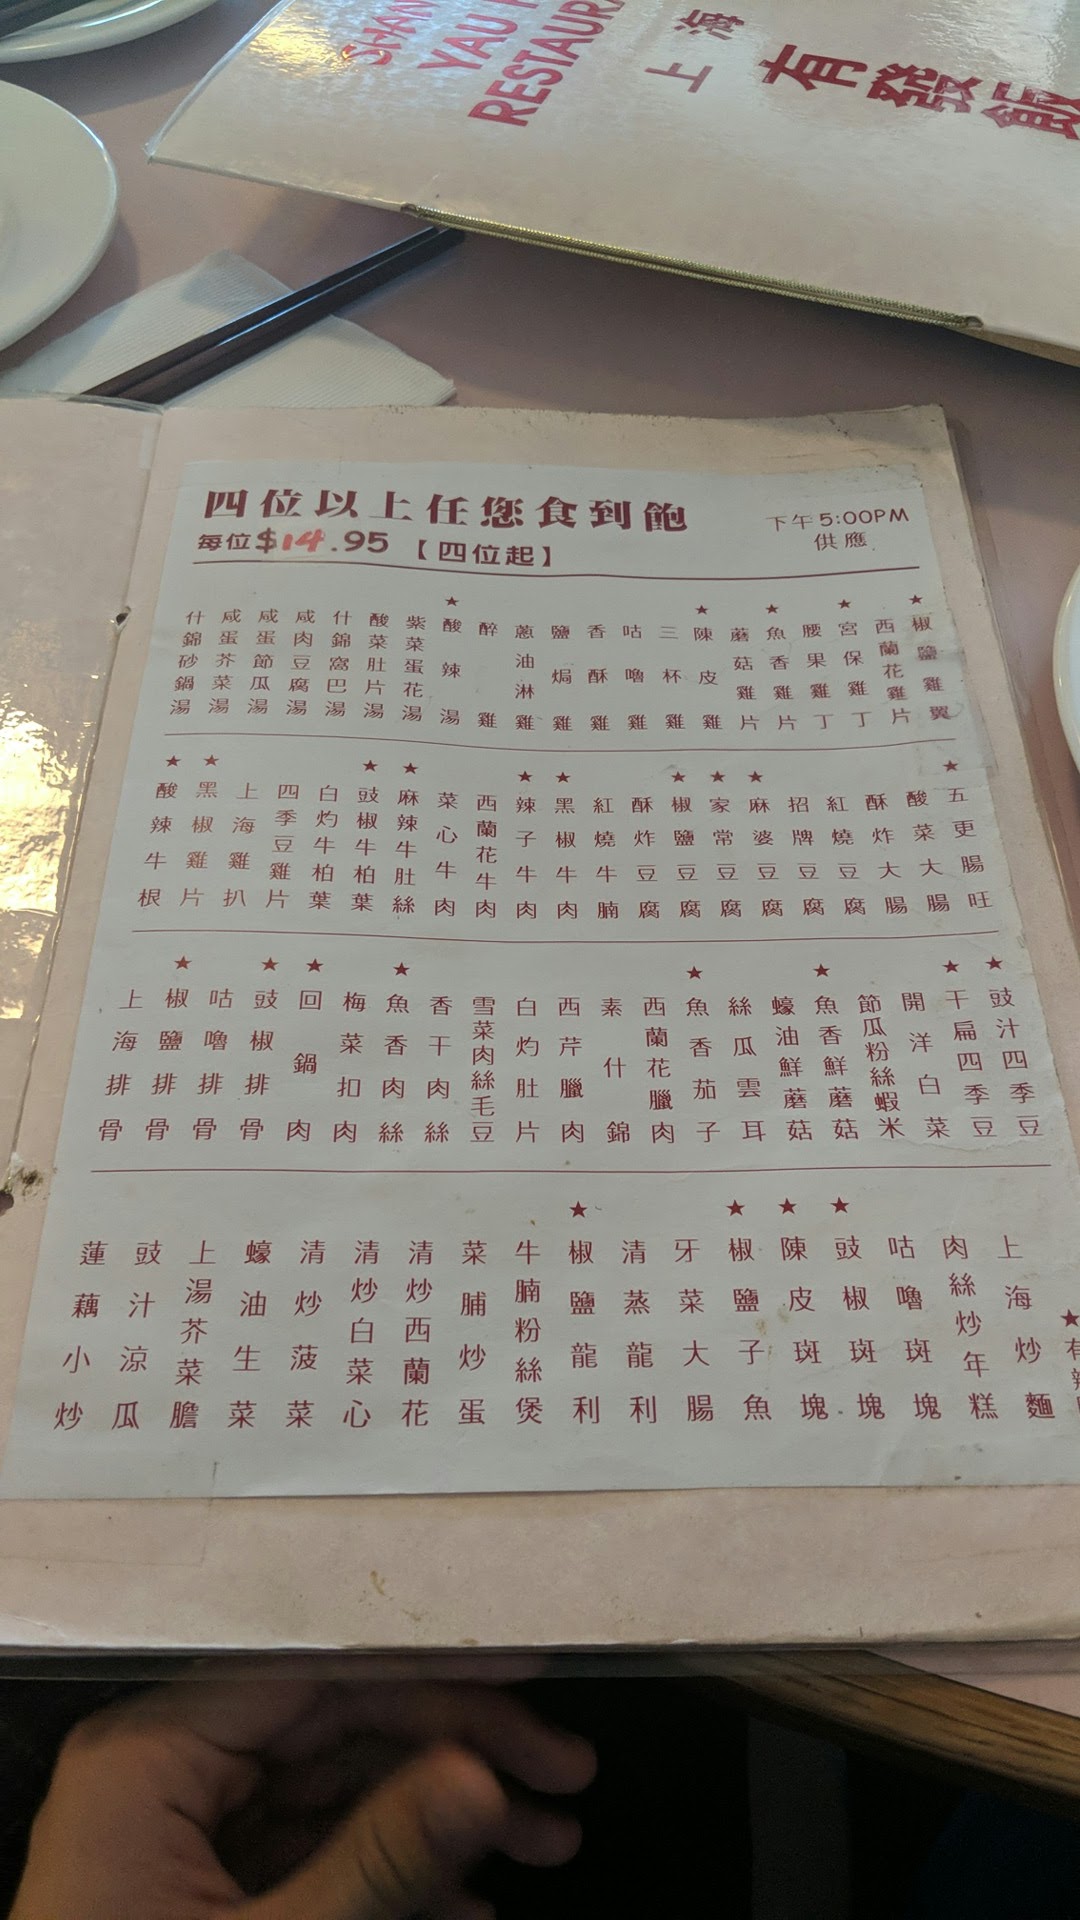 YAU
上海
有發飯
四位以上任您食到飽
每位$14.95 【四位起】
下午5:00PM
供應
什錦砂鍋湯
咸蛋芥菜湯
咸蛋節瓜湯
咸肉豆腐湯
什錦窩巴湯
酸菜肚片湯
紫菜蛋花湯
★酸辣湯
醉雞
蔥油淋雞
鹽焗雞
香酥雞
咕嚕雞
三杯雞
★陳皮雞
蘑菇雞片
★魚香雞片
腰果雞丁
★宮保雞丁
西蘭花雞片
★椒鹽雞翼
★酸辣牛根
★黑椒雞片
上海雞扒
四季豆雞片
白灼牛柏葉
★豉椒牛柏葉
★麻辣牛肚絲
菜心牛肉
西蘭花牛肉
★辣子牛肉
★黑椒牛肉
紅燒牛腩
酥炸豆腐
★椒鹽豆腐
★家常豆腐
★麻婆豆腐
招牌豆腐
紅燒豆腐
酥炸大腸
酸菜大腸
★五更腸旺
上海排骨
★椒鹽排骨
咕嚕排骨
★豉椒排骨
★回鍋肉
梅菜扣肉
★魚香肉絲
香干肉絲
雪菜肉絲毛豆
白灼肚片
西芹臘肉
素什錦
西蘭花臘肉
★魚香茄子
絲瓜雲耳
蠔油鮮蘑菇
★魚香鮮蘑菇
節瓜粉絲蝦米
開洋白菜
★干扁四季豆
★豉汁四季豆
蓮藕小炒
豉汁涼瓜
上湯芥菜膽
蠔油生菜
清炒菠菜
清炒白菜心
清炒西蘭花
菜脯炒蛋
牛腩粉絲煲
★椒鹽龍利
清蒸龍利
牙菜大腸
★椒鹽子魚
★陳皮斑塊
★豉椒斑塊
咕嚕斑塊
肉絲炒年糕
上海炒麵